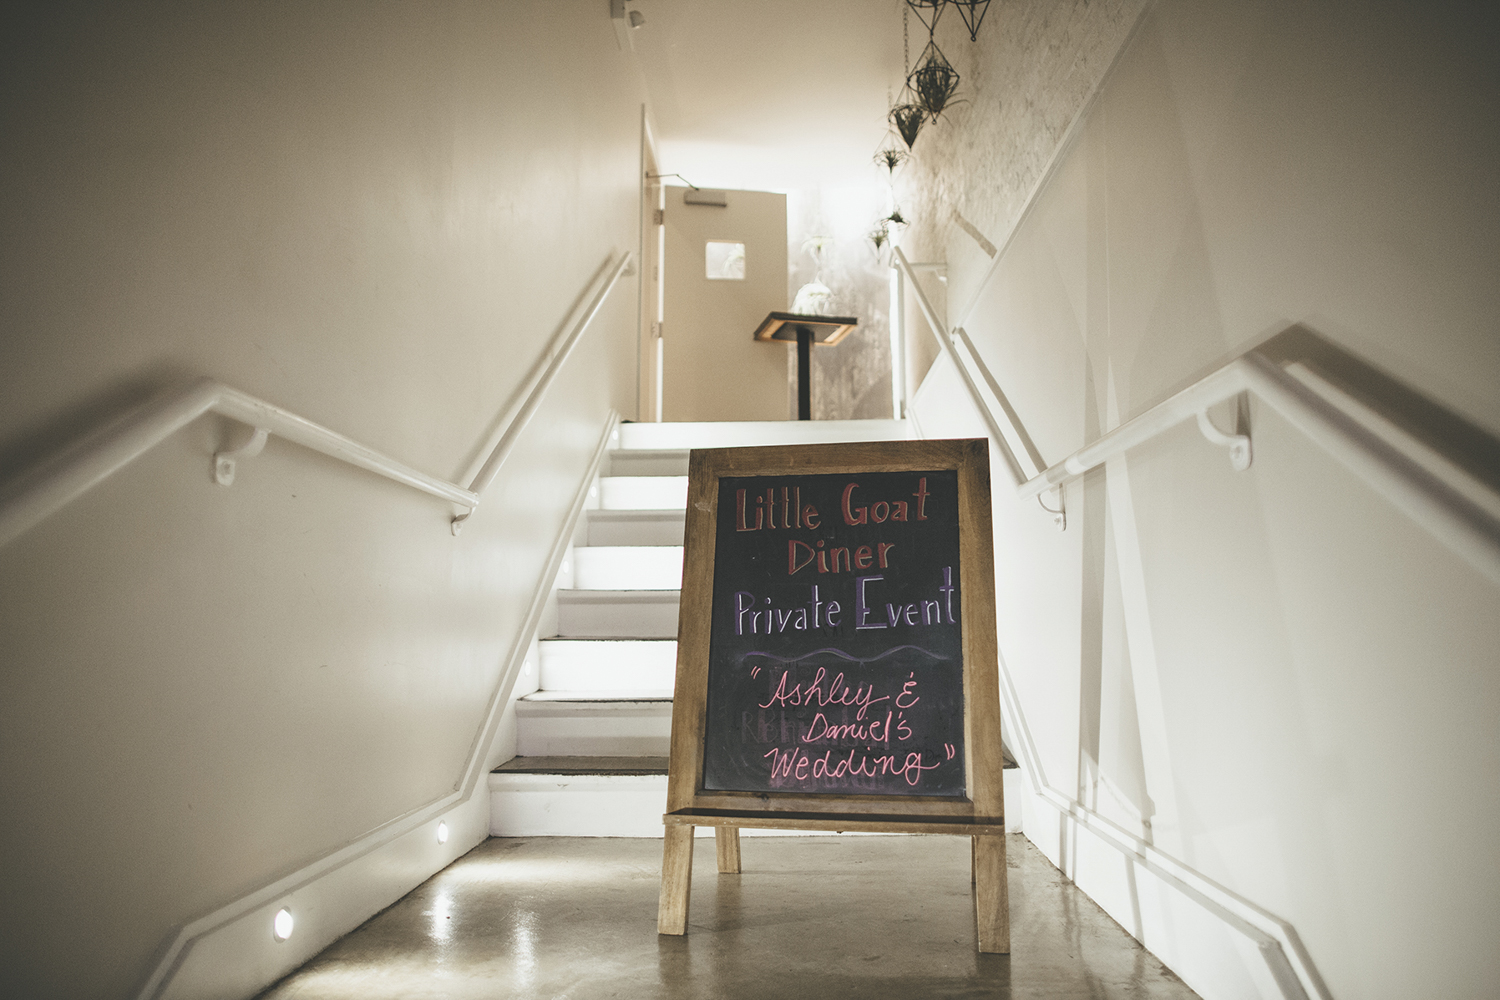 Little Goat
Diner
Private Event
"Ashley &
Daniel's
Wedding"